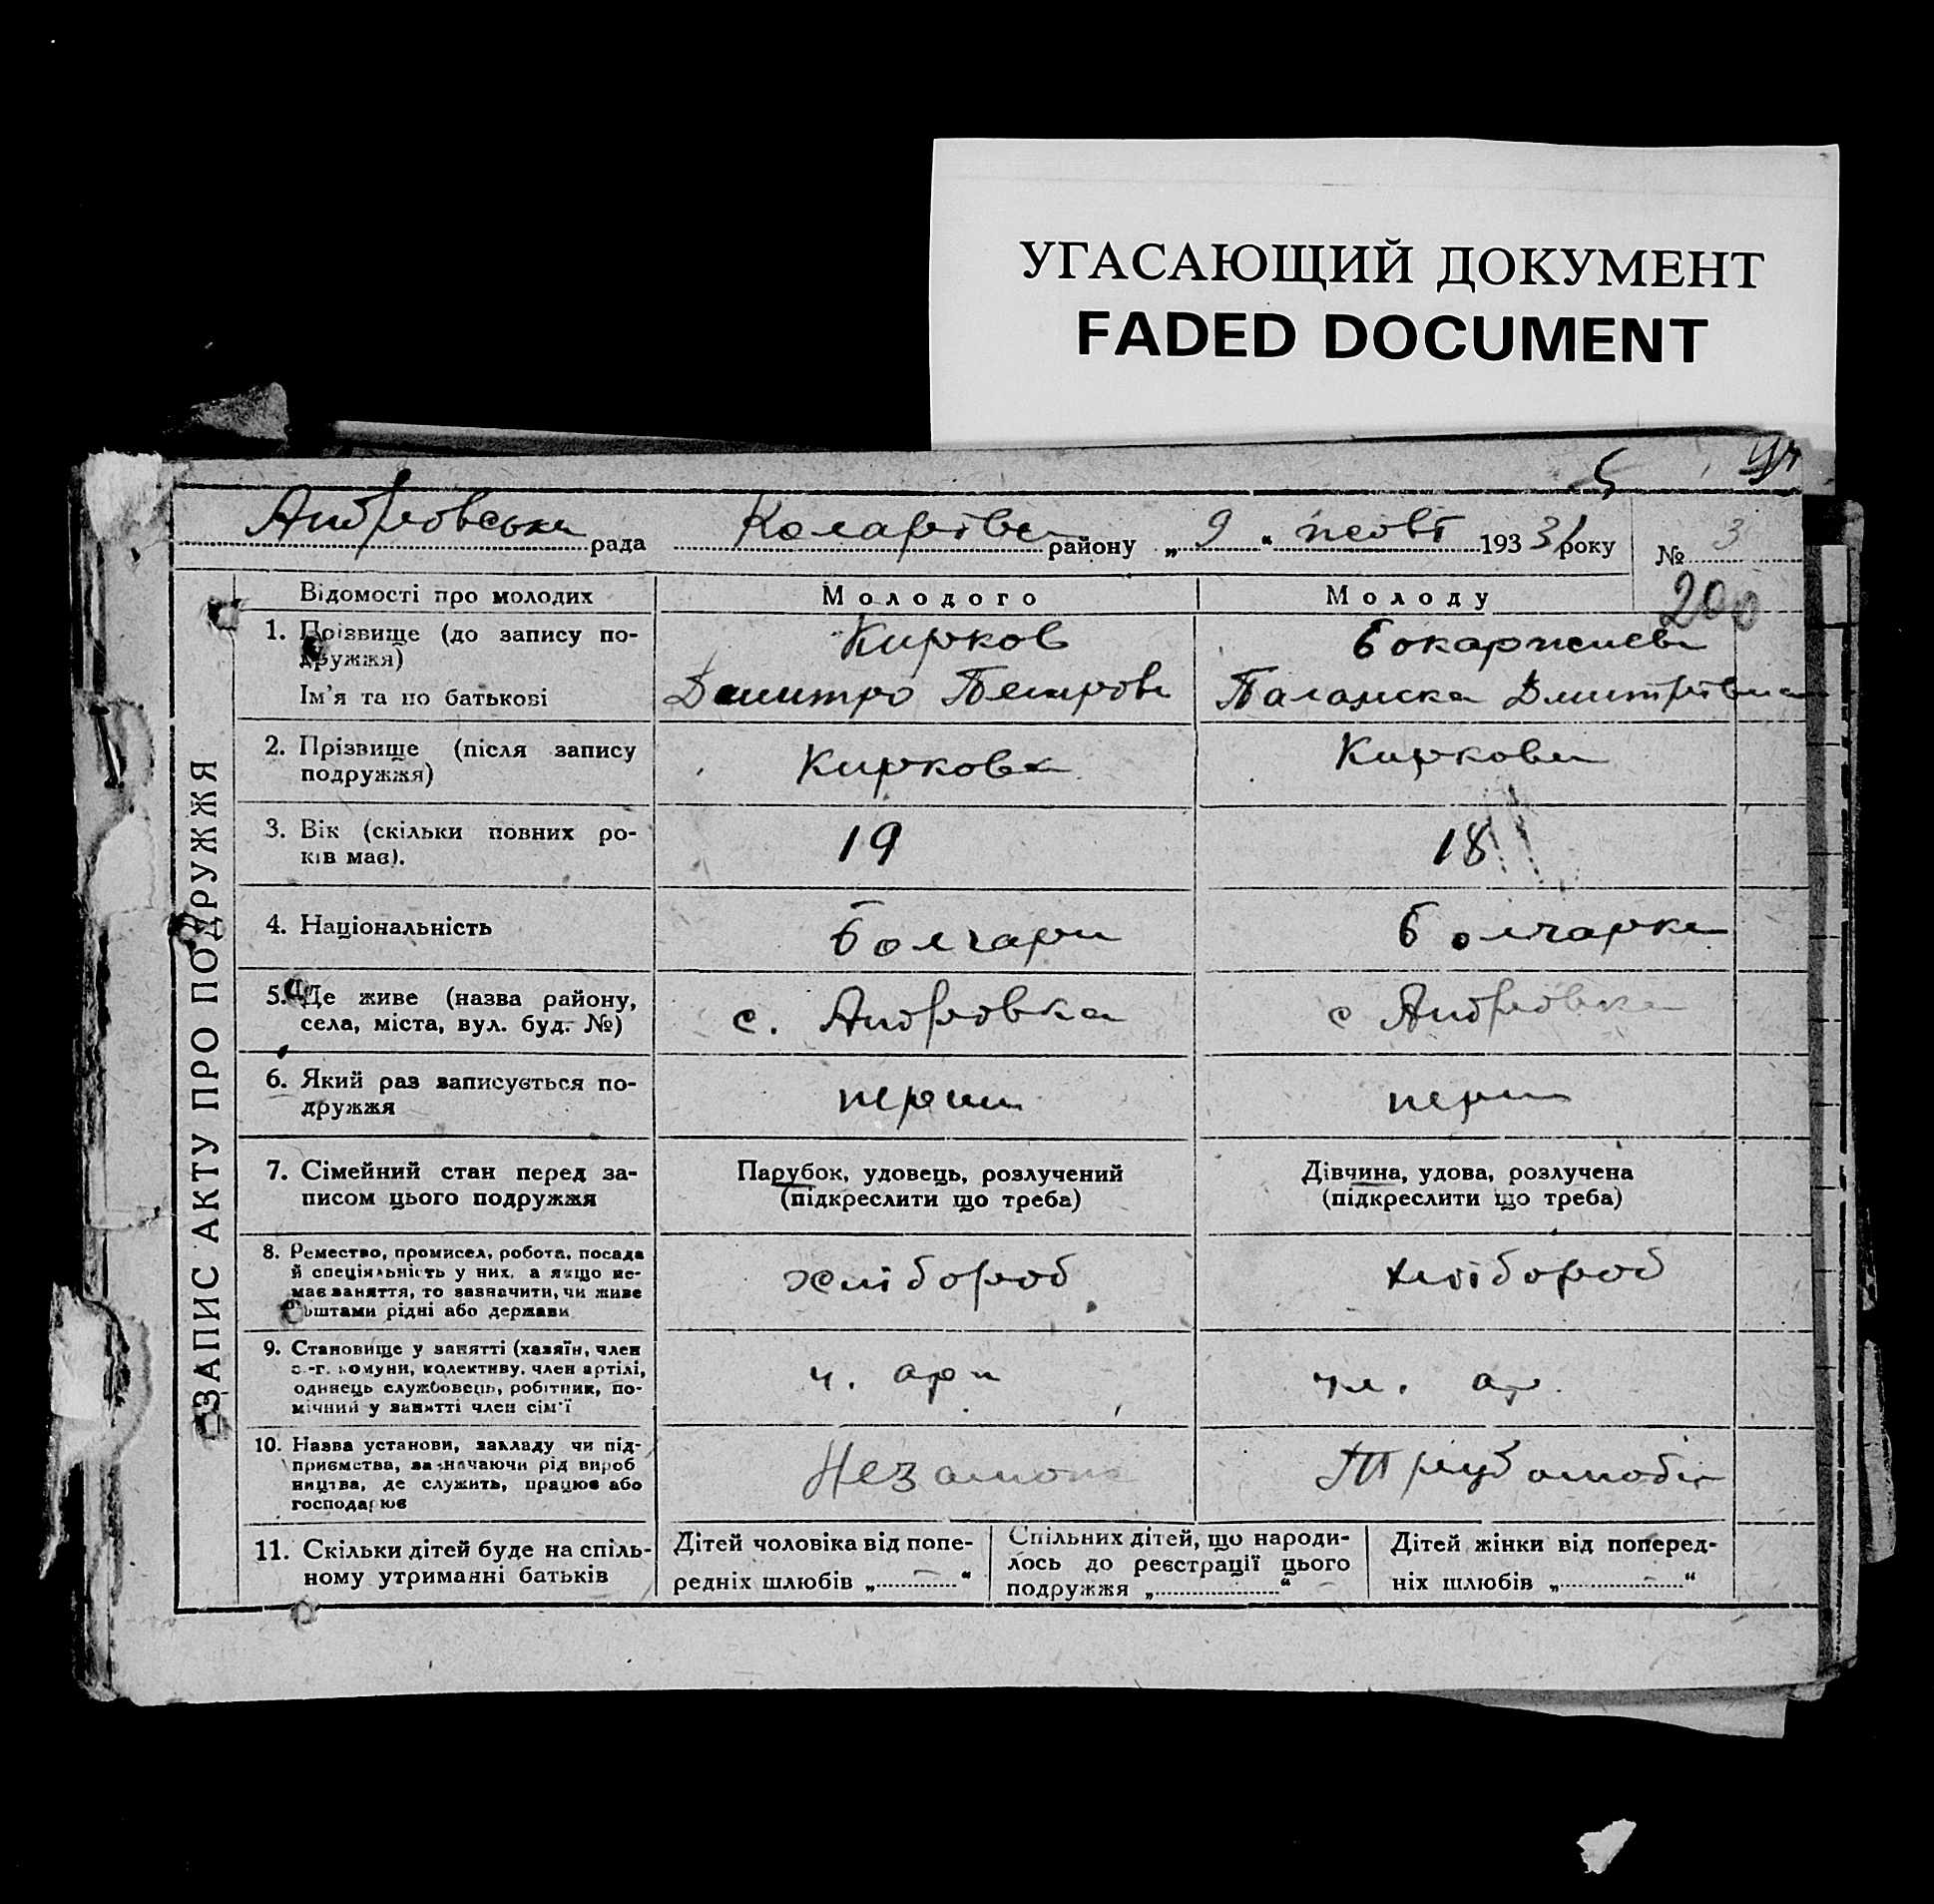 УГАСАЮЩИЙ ДОКУМЕНТ
FADED DOCUMENT
5
Андрівська рада Коларівск району „ 9 “ жовт 1933 року № 3
200
ЗАПИС АКТУ ПРО ПОДРУЖЖЯ
Відомості про молодих Молодого Молоду
1. Прізвище (до запису по-
дружжя) Кирков
Ім’я та по батькові Дмитро Петров Дмитрівна
2. Прізвище (після запису
подружжя) Кирков Киркова
3. Вік (скільки повних ро-
ків має). 19 18
4. Національність болгари болгарка
5. Де живе (назва району,
села, міста, вул. буд. №) с. Андрівка с Андрівка
6. Який раз записується по-
дружжя перши перш
7. Сімейний стан перед за-
писом цього подружжя
Парубок, удовець, розлучений
(підкреслити що треба)
Дівчина, удова, розлучена
(підкреслити що треба)
8. Ремество, промисел, робота, посада
й спеціяльність у них, а якщо не-
має заняття, то зазначити, чи живе
коштами рідні або держави
хлібороб хлібороб
9. Становище у занятті (хазяїн, член
с.-г. комуни, колективу, член артілі,
одинець службовець, робітник, по-
мічний у занятті член сім’ї
ч. арт чл. ар.
10. Назва установи, закладу чи під-
приємства, зазначаючи рід вироб
ництва, де служить, працює або
господарює
Незамож
11. Скільки дітей буде на спіль-
ному утриманні батьків
Дітей чоловіка від попе-
редніх шлюбів „ – “
Спільних дітей, що народи-
лось до реєстрації цього
подружжя „ “
Дітей жінки від поперед-
ніх шлюбів „ – “